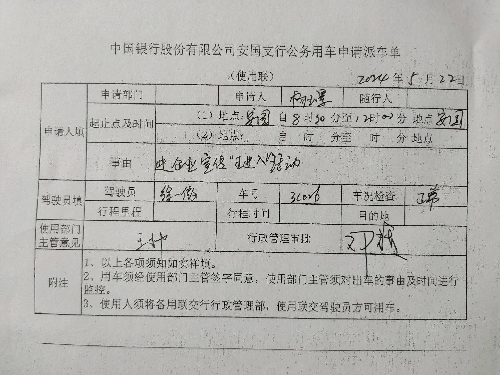 中国银行股份有限公司安国支行公务用车申请派车单
（使用联） 2024年5月22日
申请人填 申请部门 申请人 随行人
起止点及时间 （1）地点：安国 自8时30分至12时00分 地点 安国
（2）地点： 自 时 分至 时 分 地点
事由 进企业宣传"主进入"活动
驾驶员填 驾驶员 徐一傲 车号 车况检查 正常
行程里程 行程时间 目的地
使用部门主管意见 行政管理审批
附注 1、以上各项须知如实样填。
2、用车须经使用部门主管签字同意，使用部门主管须对出车的事由及时间进行
监控。
3、使用人须将各用联交行行政管理部，使用联交驾驶员方可用车。